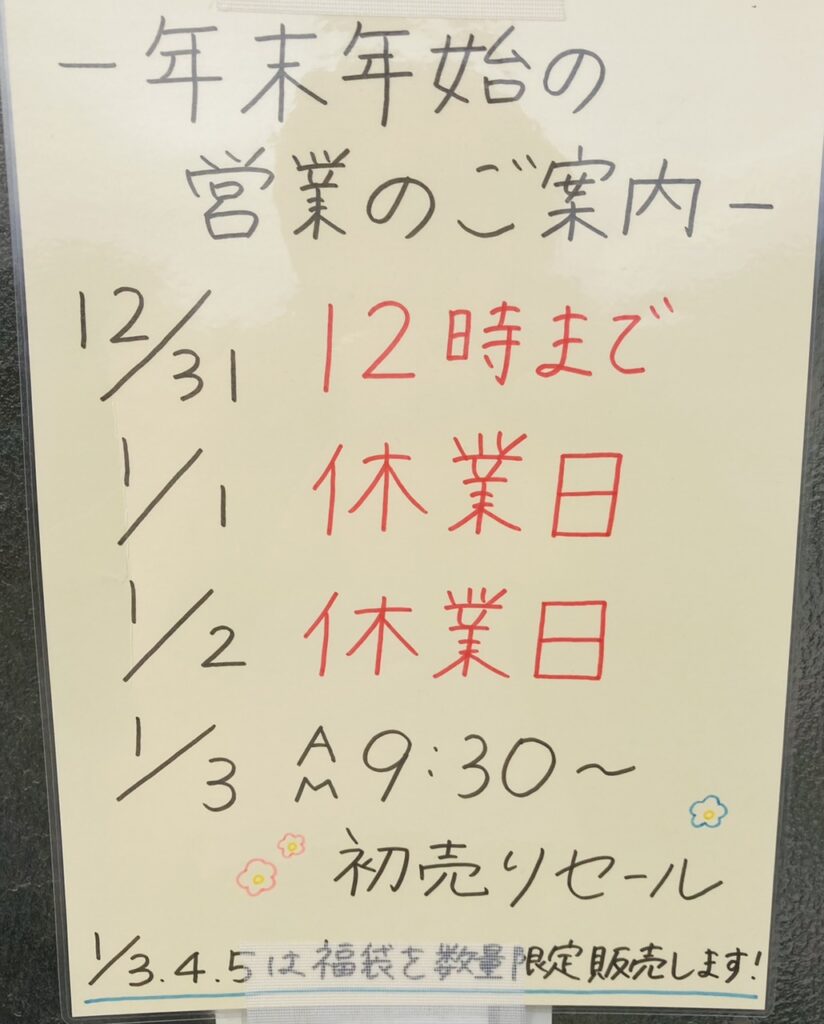 －年末年始の
営業のご案内－
12/31 12時まで
1/1 休業日
1/2 休業日
1/3 AM9:30～
初売りセール
1/3.4.5は福袋を数量限定販売します!